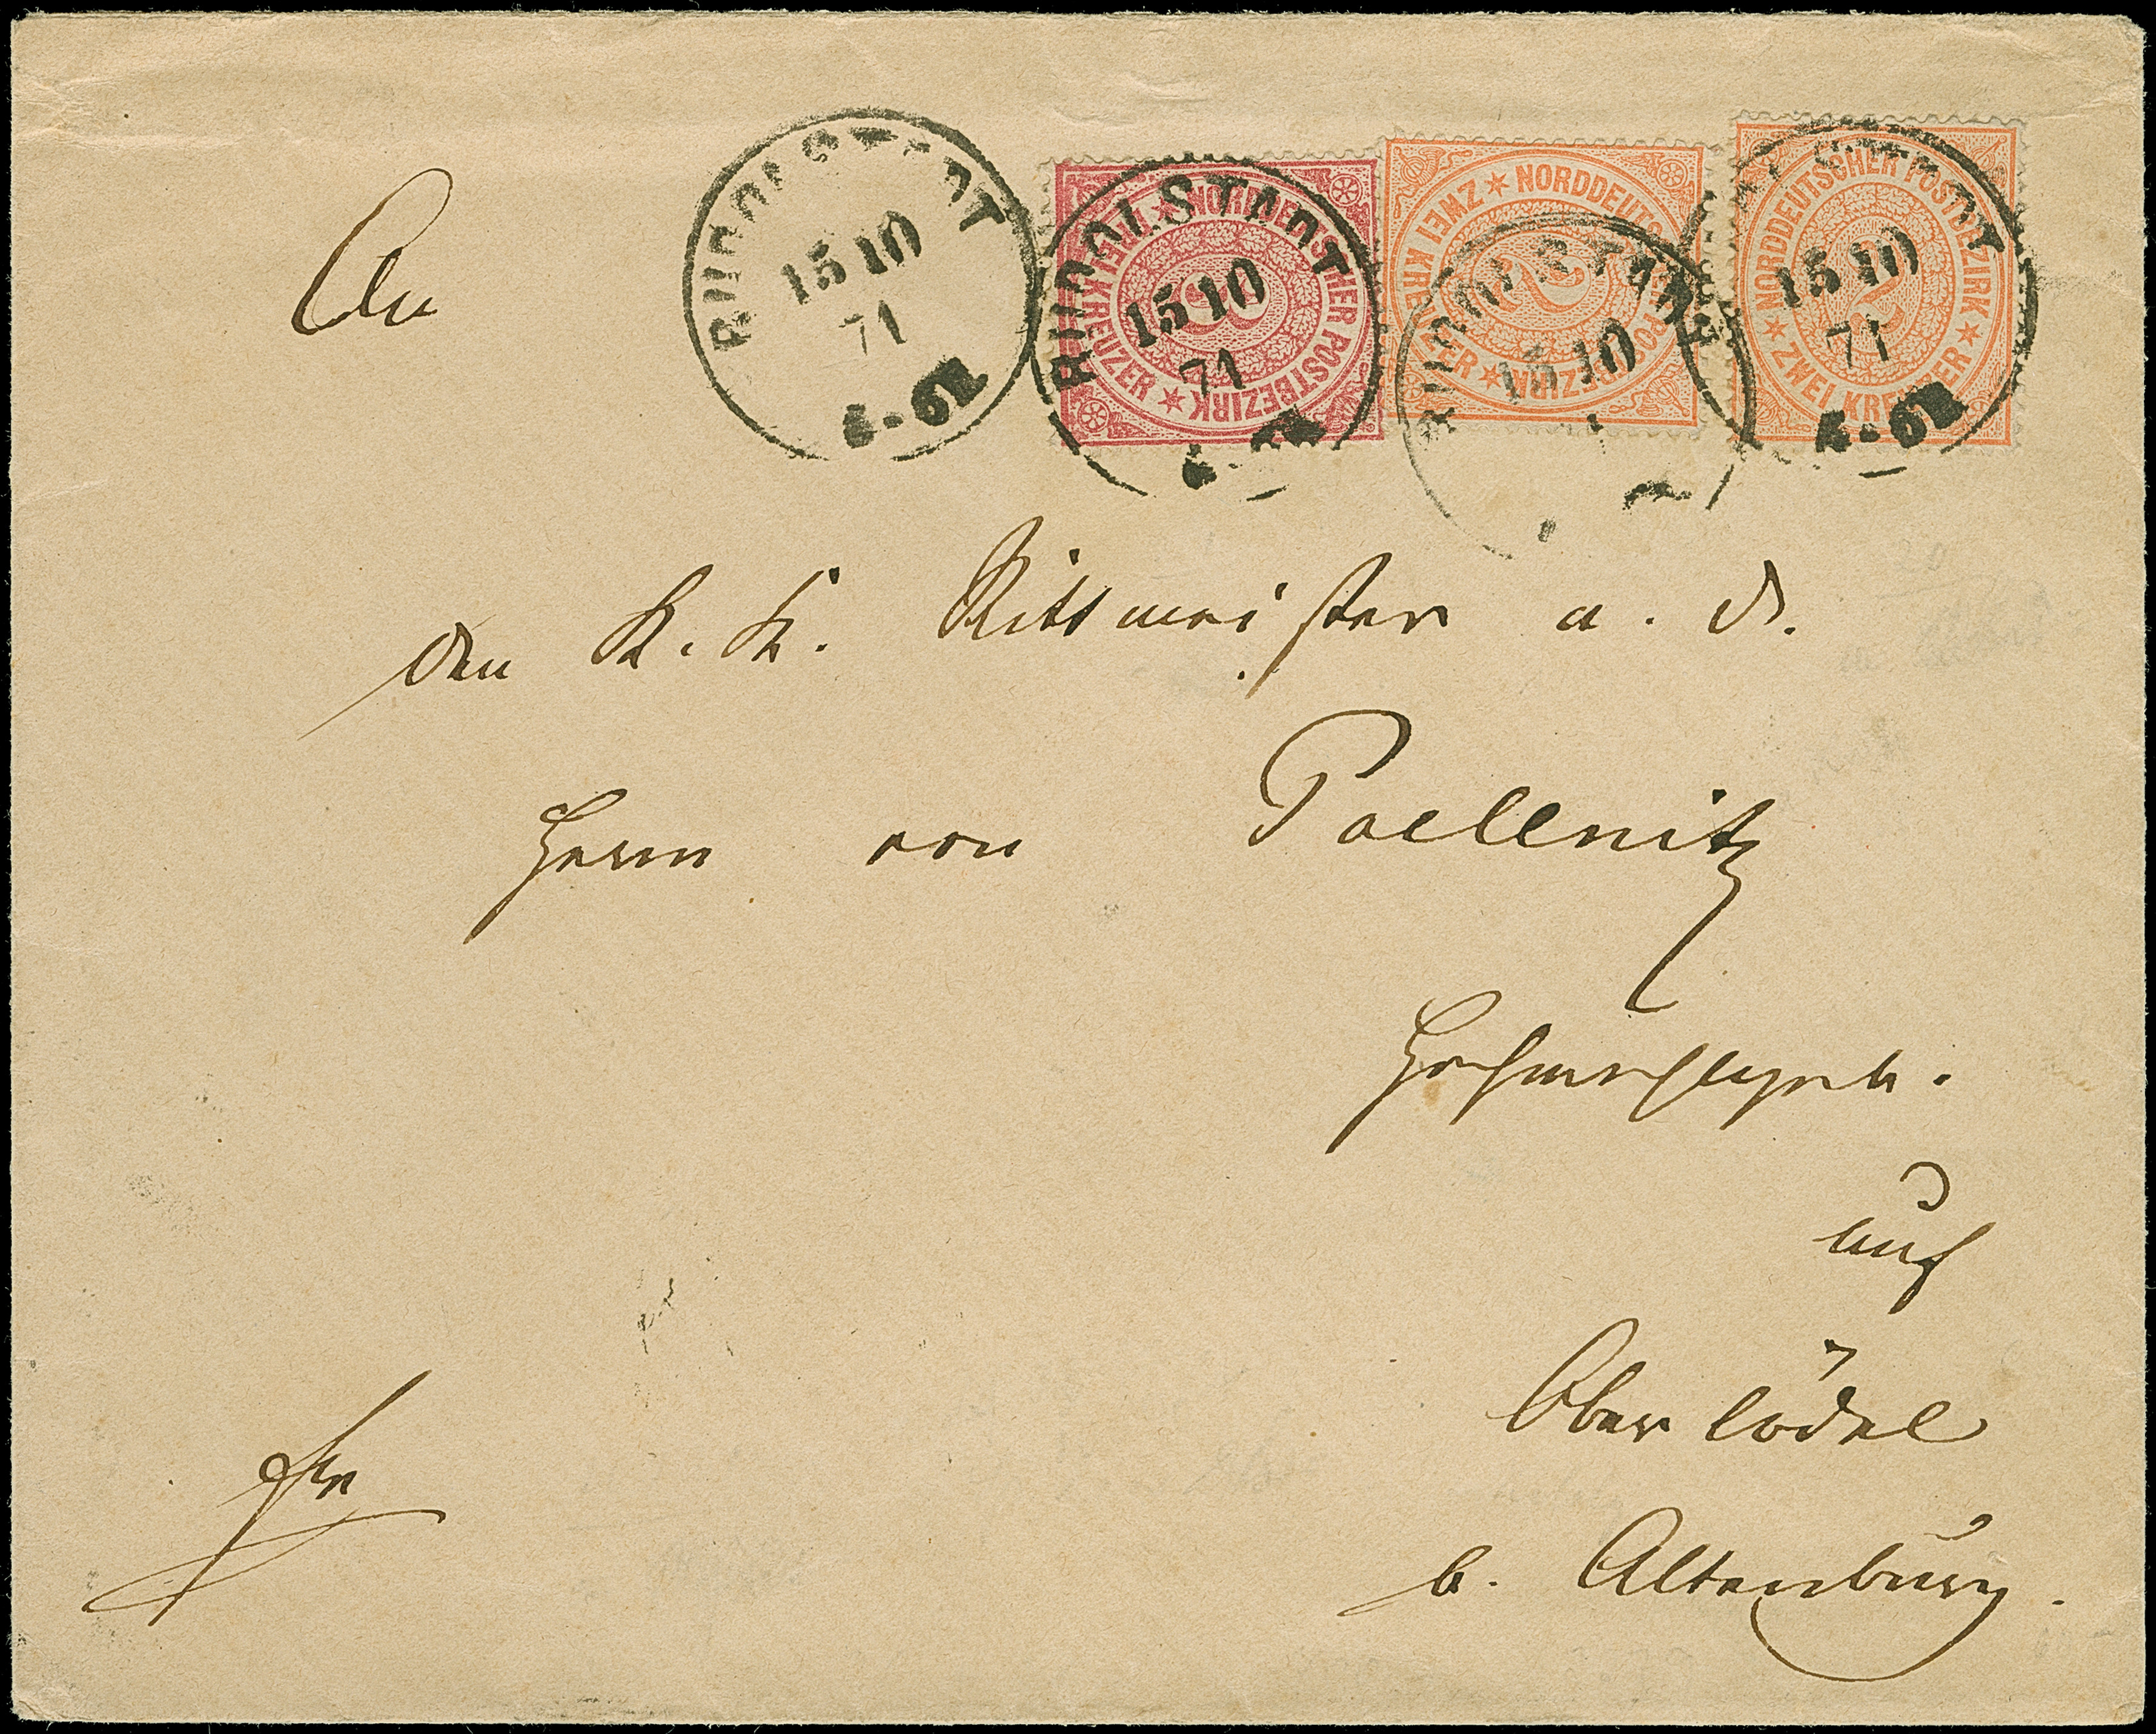 RUDOLSTADT
15 10
71
4-6N
NORDDEUTSCHER POSTBEZIRK
DREI KREUZER
RUDOLSTADT
15 10
71
NORDDEUTSCHER POSTBEZIRK
ZWEI KREUZER
2
RUDOLSTADT
15 10
NORDDEUTSCHER POSTBEZIRK
ZWEI KREUZER
2
15 10
71
4-6N
An
den K. K. Rittmeister a. D.
Herrn von Poellenitz
Hochwohlgeb.
auf
Oberlödel
b. Altenburg.
fr